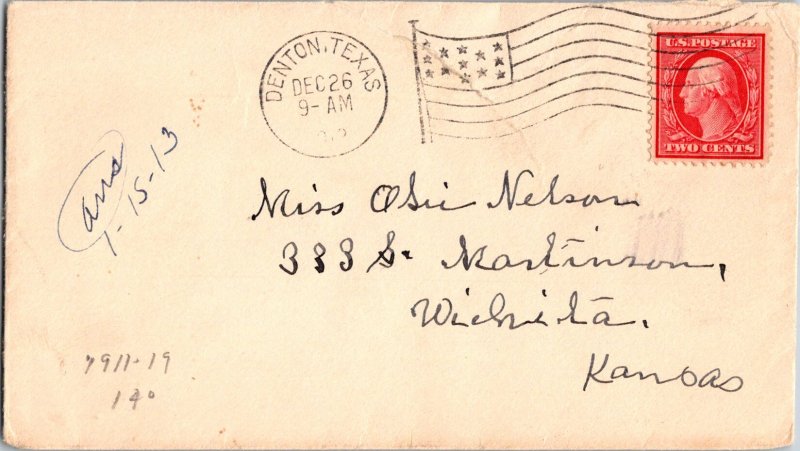 DENTON, TEXAS
DEC 26
9-AM
U.S. POSTAGE
TWO CENTS
ans
1-15-13
Miss Osie Nelson
333 S. Martinson,
Wichita.
Kansas
7911-19
14°